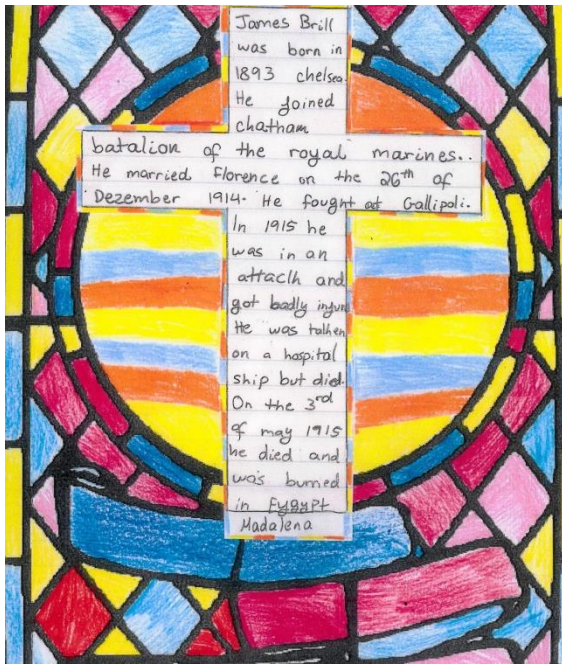 James Brill
was born in
1893 chelsea.
He joined
chatham
batalion of the royal marines..
He married Florence on the 26th of
Dezember 1914. He fought at Gallipoli.
In 1915 he
was in an
attaclh and
got badly injure
He was talhen
on a hospital
ship but died.
On the 3rd
of may 1915
he died and
was burned
in Eygypt
Madalena